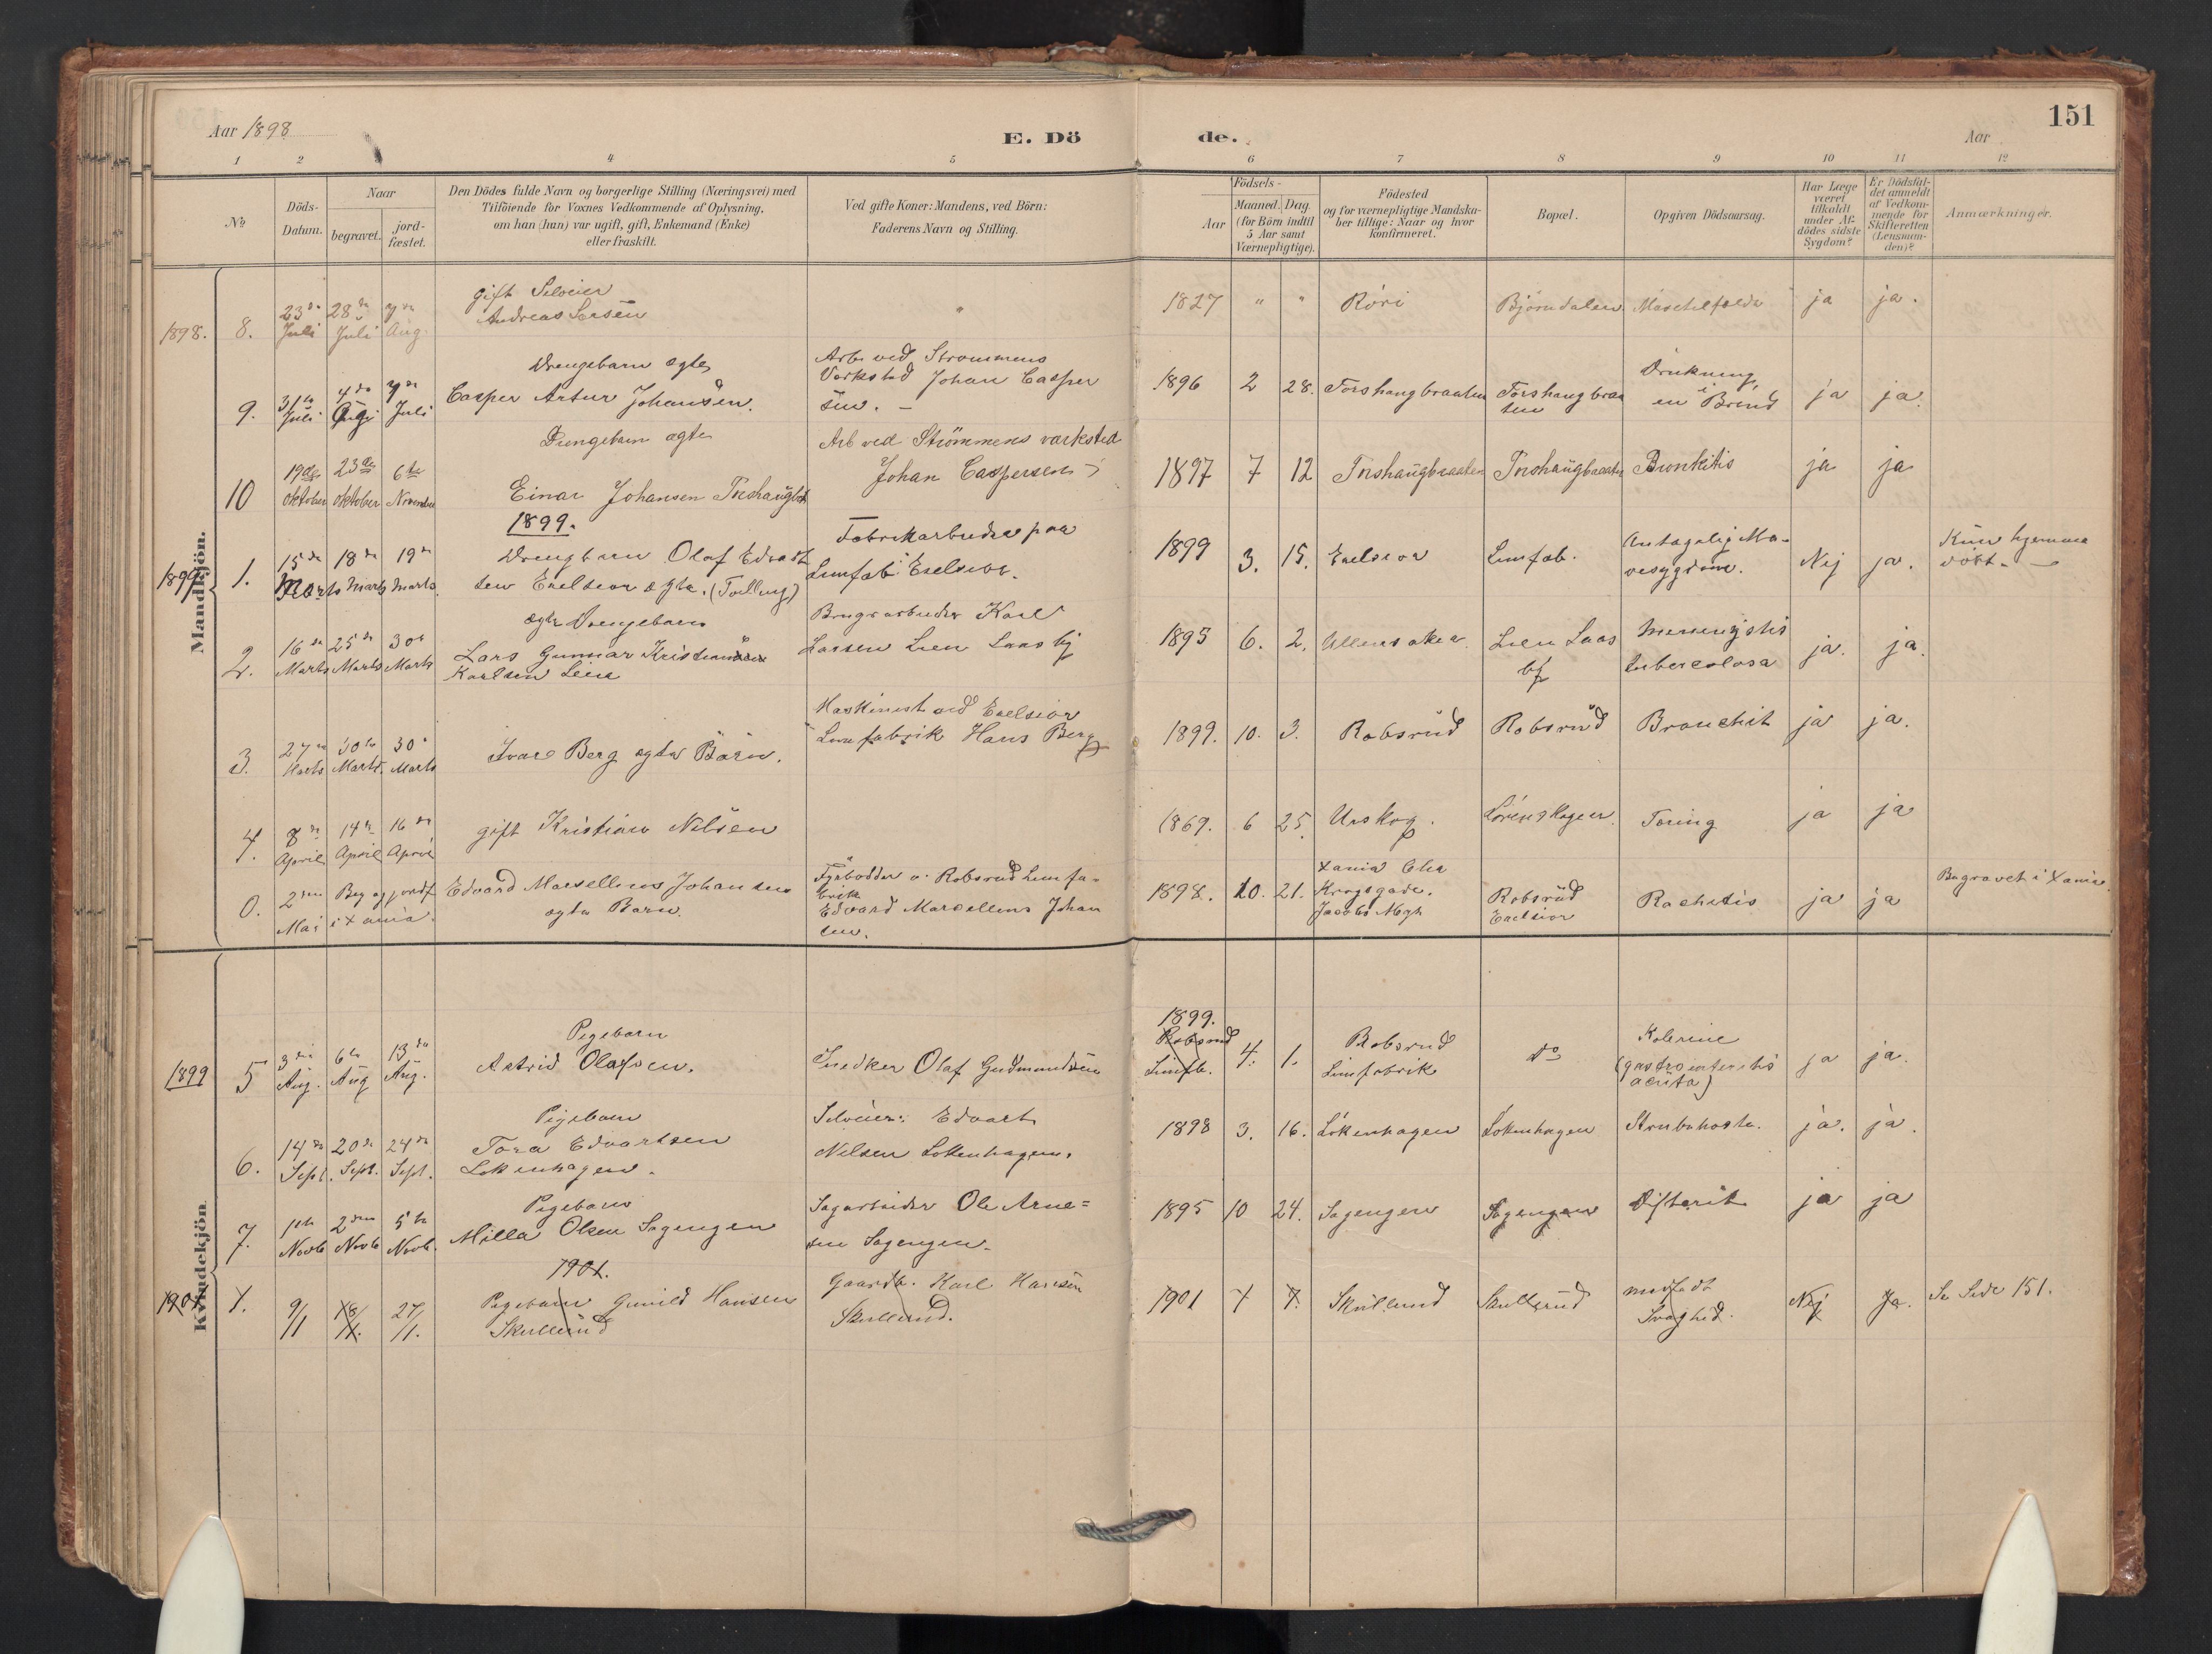 151
Aar 1898
E. Dö de.
Aar
1 2 3 4 5 6 7 8 9 10 11 12
No
Döds-
Datum.
Naar
begravet.
jord-
fæstet.
Den Dödes fulde Navn og borgerlige Stilling (Næringsvei) med
Tilföiende for Voxnes Vedkommende af Oplysning,
om han (hun) var ugift, gift, Enkemand (Enke)
eller fraskilt.
Ved gifte Koner: Mandens, ved Börn:
Faderens Navn og Stilling.
Födsels-
Aar
Maaned. Dag.
(for Börn indtil
5 Aar samt
Værnepligtige).
Födested
og for værnepligtige Mandska-
ber tillige: Naar og hvor
konfirmeret.
Bopæl.
Opgiven Dödsaarsag.
Har Læge
været
tilkaldt
under Af-
dödes sidste
Sygdom?
Er Dödsfal-
det anmeldt
af Vedkom-
mende for
Skifteretten
(Lensman-
den)?
Anmærkninger.
Mandkjön.
1898. 8.
23de
Juli
28de
Juli
7de
Aug.
Gift Selveier
Andreas
"
1827 " " Röri Björndalen ja ja.
9.
31te
Juli
4de
Aug
7de
Juli
Drengebarn ægte
Casper Artur Johansen.
Arb. ved Strømmens
Værksted Johan Casper
sen. -
1896 2 28. Torshaugbraaten
Torshaugbraa
ten
Drukning
i
en Brønd
ja ja.
10
19de
Oktober
23de
Oktober
6te
November
Drengebarn ægte
Einar Johansen
Arb ved Strömmens værksted
Johan Caspersen
1897 7 12 Torshaugbraaten Torshaugbraaten Bronkitis ja ja
1899.
1899. 1.
15de
Marts
18de
Marts
19de
Marts.
Drengebarn Olaf Edvardt
sen Exelsior ægte. (Tvilling)
Fabrikarbeider paa
Limfab. Exelsior.
1899 3. 15. Exelsior Limfab.
Antagelig Ma-
vesygdom.
Nej ja.
Kun hjemme
døbt. -
2.
16de
Marts
25de
Marts
30te
Marts
ægte Drengebarn
Lars Gunnar Kristian
Karlsen Lien
Brugsarbeider Karl
Larsen Lien Laasby
1895 6. 2. Ullensaker
Lien Laas
by
Meningitis
tuberculosa
ja. ja.
3.
27de
Marts
30te
Marts.
30te
Marts
Ivar Berg ægte Barn.
Maskinist ved Exelsior
Limfabrik Hans Berg
1899. 10. 3. Robsrud Robsrud Bronchit ja ja.
4.
8de
April
14de
April
16de
April
gift Kristian Nilsen
1869. 6 25. Urskog. Lørenskogen. Tæring ja ja
0.
2den
Mai
Beg og jordf
i Xania.
Edvard Marsellius Johansen
ægte Barn.
Fyrbödder v. Robsrud Limfa-
brik
Edvard Marsellius Johan
sen.
1898. 10. 21.
Xania Chr
Krogsgade.
Jacobs Mgh
Robsrud
Exelsior
Rachitis ja ja Begravet i Xania.
Kvindekjön.
1899 5
3die
Aug.
6te
Aug
13de
Aug.
Pigebarn
Astrid Olafsen.
Snedker Olaf Gudmundsen
1899.
Robsrud
Limfb.
4. 1.
Robsrud
Limfabrik
do
Kolerine
(gastrointeritis
acuta)
ja ja.
6.
14de
Sept.
20de
Sept.
24de
Sept.
Pigebarn
Tora Edvartsen
Løkenhagen.
Selveier: Edvart
Nilsen Løkenhagen.
1898 3. 16. Løkenhagen Løkenhagen Strubehoste. ja. ja.
7.
1ste
Novb
2den
Novb
5te
Novb.
Pigebarn
Milla Olsen Sagengen
Sagarbeider Ole Arne=
sen Sagengen.
1895 10 24. Sagengen Sagengen Difterit ja ja
1901.
1901 1.
9/1
18/1.
27/1.
Pigebarn Gunild Hansen
Skullerud
Gaardb. Karl Hansen
Skullerud.
1901 1 7. Skullerud Skullerud
medfødt
Svaghed.
Nej Ja. Se Side 151.